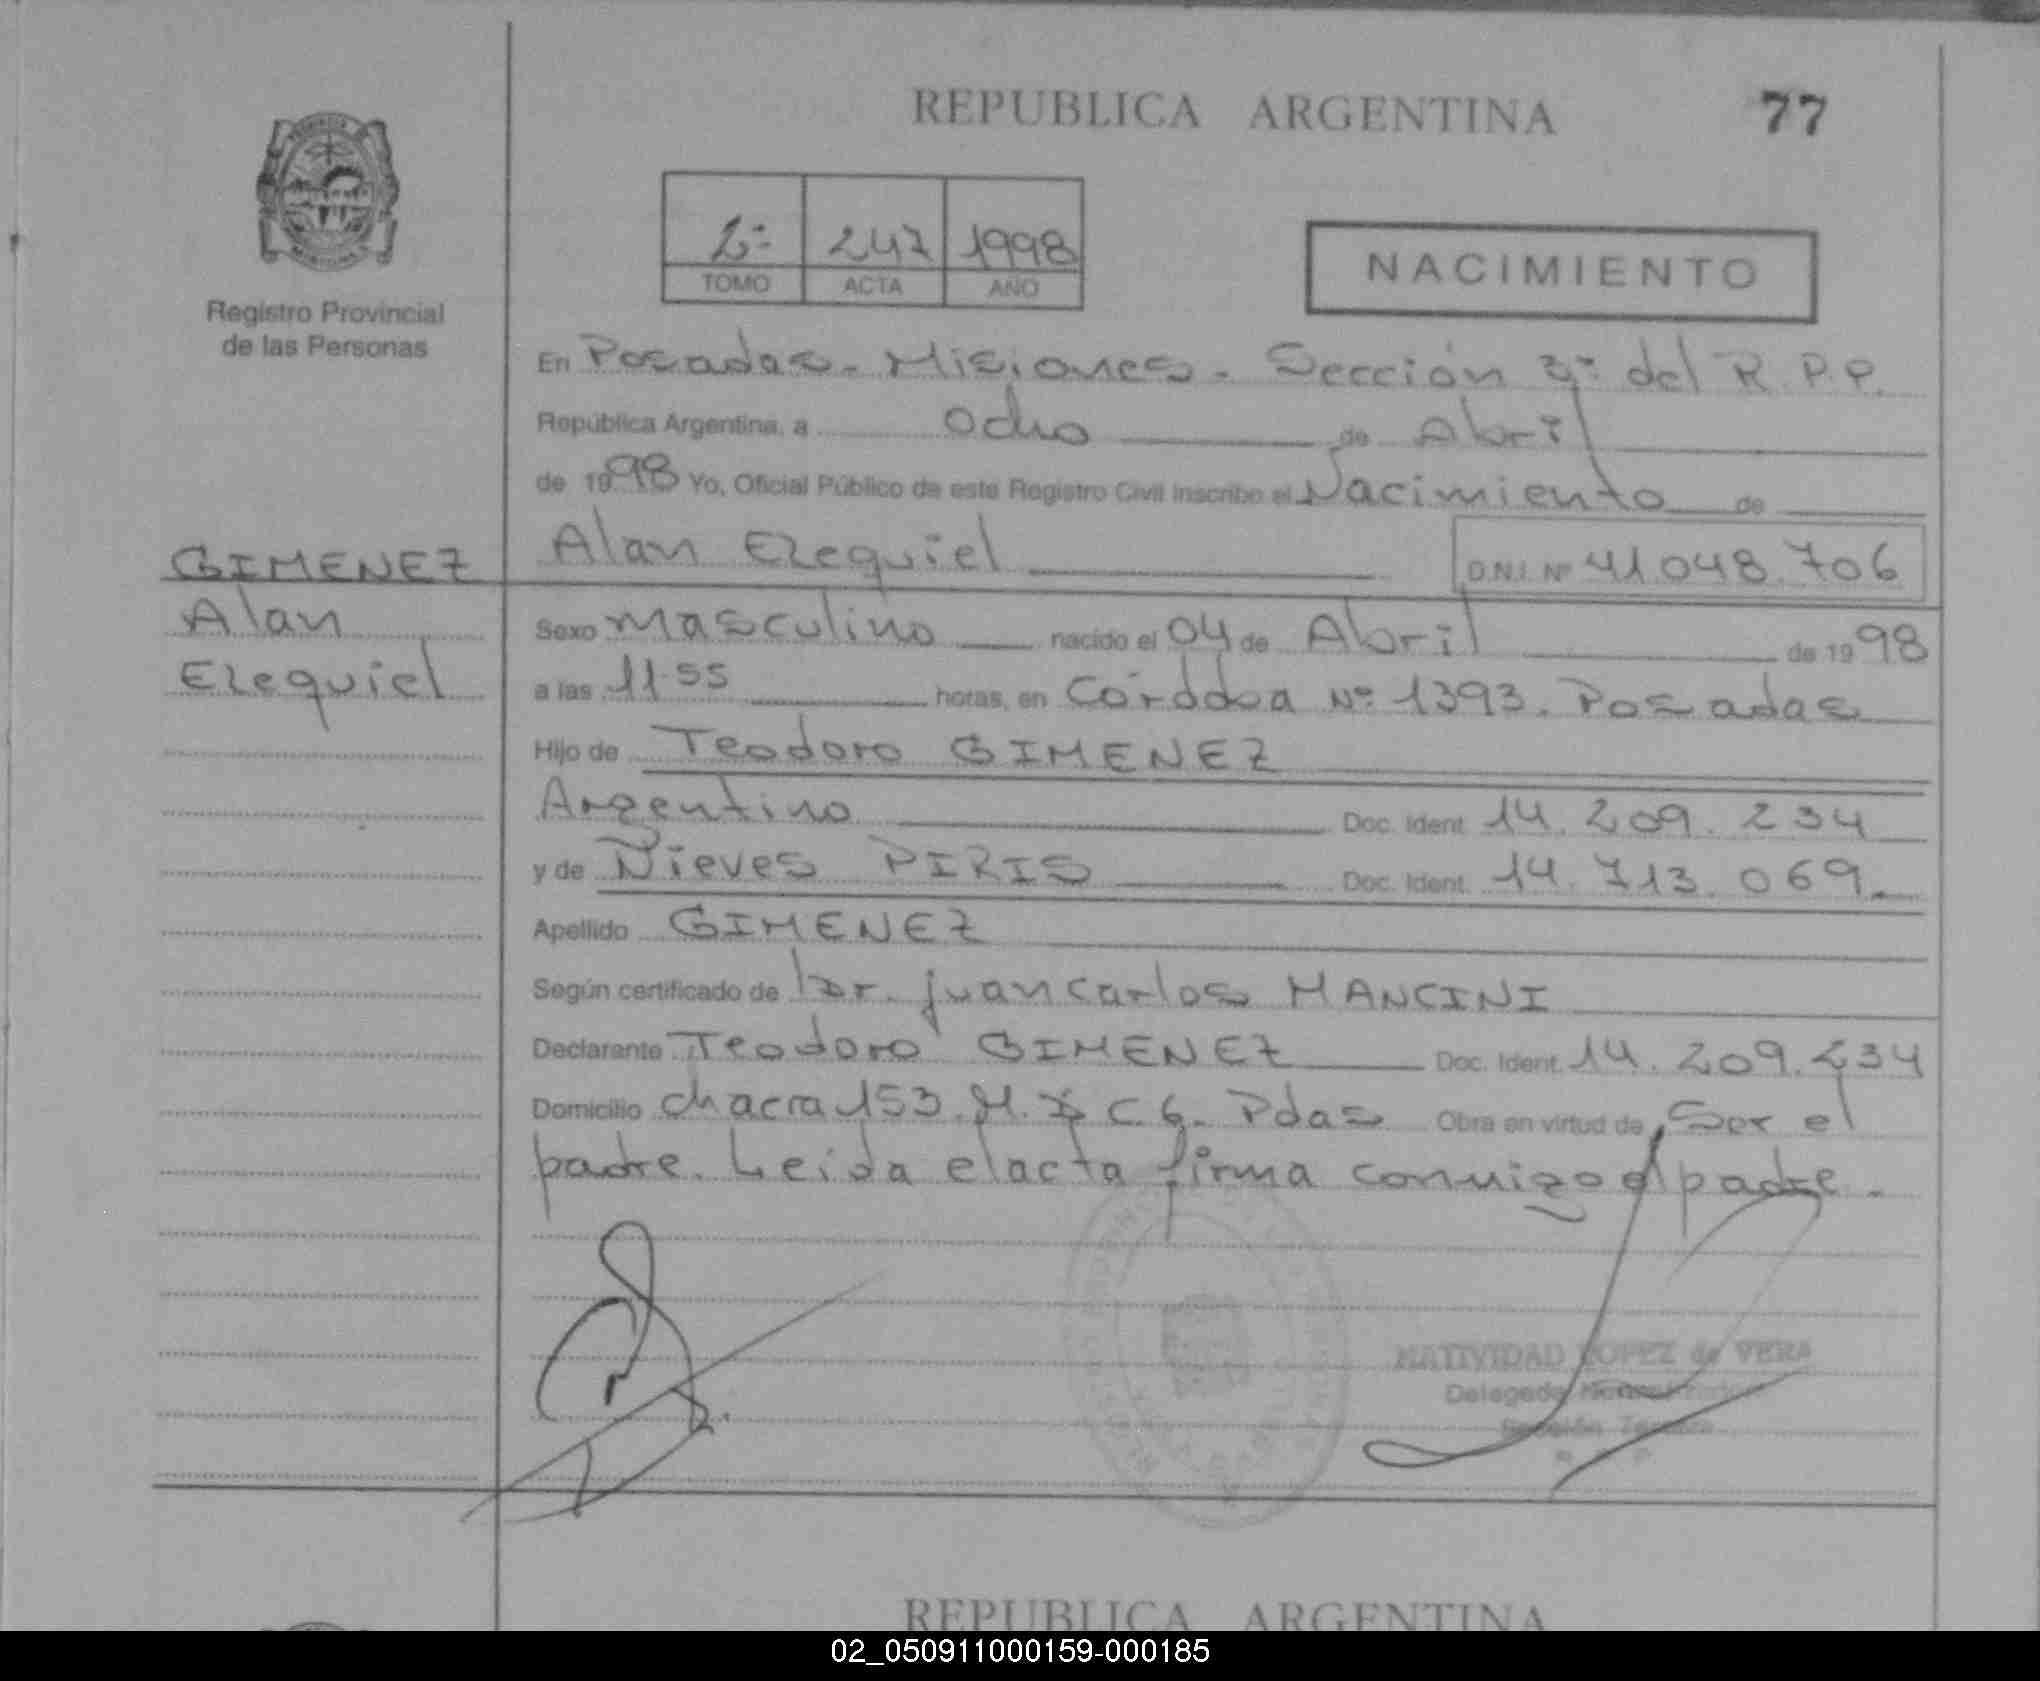 REPUBLICA ARGENTINA 77
2º 247 1998
TOMO ACTA AÑO
NACIMIENTO
Registro Provincial
de las Personas
En Posadas - Misiones - Sección 3º del R.P.P.
República Argentina, a ocho de Abril
de 1998 Yo, Oficial Público de este Registro Civil inscribo el Nacimiento de
GIMENEZ
Alan
Ezequiel
Alan Ezequiel D.N.I. Nº 41.048.706
Sexo masculino nacido el 04 de Abril de 1998
a las 11.55 horas, en Córdoba Nº 1393. Posadas
Hijo de Teodoro GIMENEZ
Argentino Doc. Ident. 14.209.234
y de Nieves PIRIS Doc. Ident. 14.713.069.
Apellido GIMENEZ
Según certificado de Dr. Juan Carlos MANCINI
Declarante Teodoro GIMENEZ Doc. Ident. 14.209.234
Domicilio chacra 153. M. C.6. Pdas Obra en virtud de Ser el
padre. Leida el acta firma conmigo el padre.
NATIVIDAD LOPEZ de VERA
Sección Tercera
REPUBLICA ARGENTINA
02_050911000159-000185